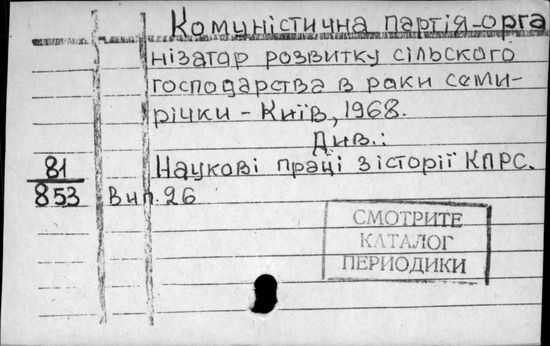 Комуністична партія-орга
нізатар розвитку сільского
господарства в роки семи-
річки - Київ, 1968.
Див.:
81 Наукові праці з історії КПРС.
853 Вип. 26
СМОТРИТЕ
КАТАЛОГ
ПЕРИОДИКИ